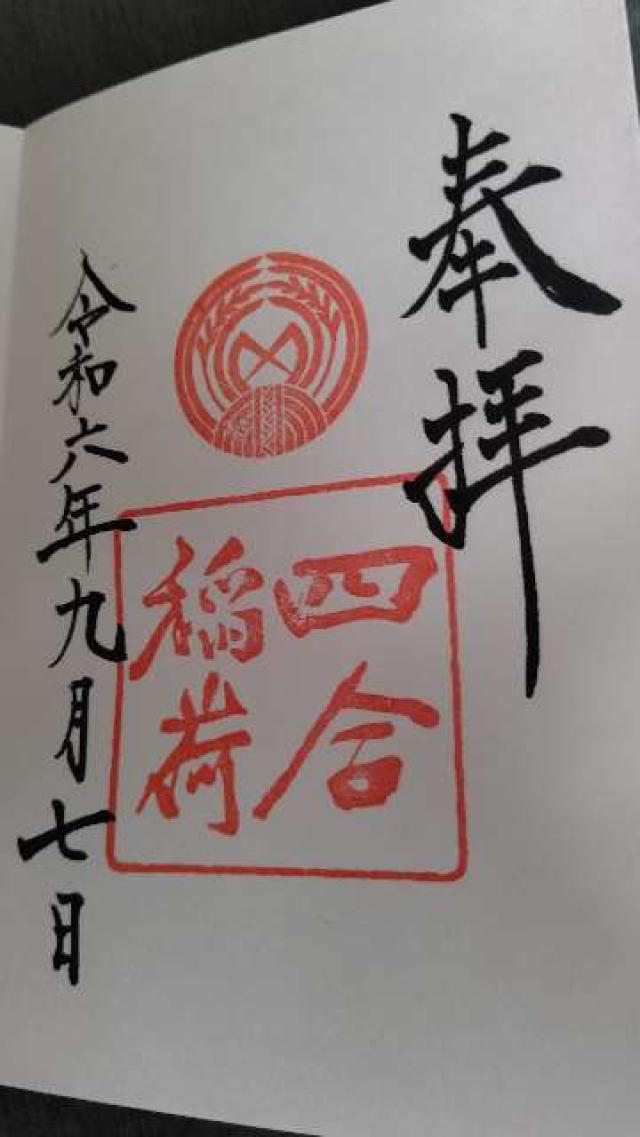 奉拝
四合
稲荷
令和六年九月七日